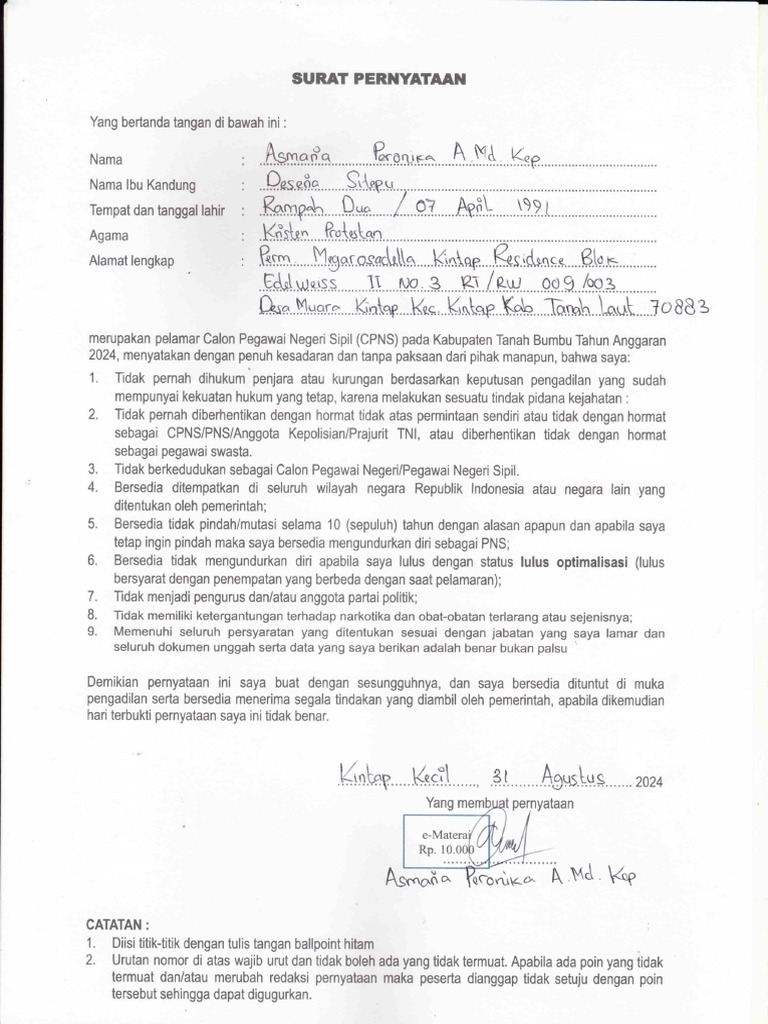 SURAT PERNYATAAN
Yang bertanda tangan di bawah ini :
Nama : Asmaria Peronika A.Md.Kep
Nama Ibu Kandung : Deseria Sitepu
Tempat dan tanggal lahir : Rampah Dua / 07 April 1991
Agama : Kristen Protestan
Alamat lengkap : Perm. Megarosadella Kintap Residence Blok
Edelweiss II No.3 RT/RW 009/003
Desa Muara Kintap Kec. Kintap Kab Tanah Laut 70883
merupakan pelamar Calon Pegawai Negeri Sipil (CPNS) pada Kabupaten Tanah Bumbu Tahun Anggaran
2024, menyatakan dengan penuh kesadaran dan tanpa paksaan dari pihak manapun, bahwa saya:
1. Tidak pernah dihukum penjara atau kurungan berdasarkan keputusan pengadilan yang sudah
mempunyai kekuatan hukum yang tetap, karena melakukan sesuatu tindak pidana kejahatan :
2. Tidak pernah diberhentikan dengan hormat tidak atas permintaan sendiri atau tidak dengan hormat
sebagai CPNS/PNS/Anggota Kepolisian/Prajurit TNI, atau diberhentikan tidak dengan hormat
sebagai pegawai swasta.
3. Tidak berkedudukan sebagai Calon Pegawai Negeri/Pegawai Negeri Sipil.
4. Bersedia ditempatkan di seluruh wilayah negara Republik Indonesia atau negara lain yang
ditentukan oleh pemerintah;
5. Bersedia tidak pindah/mutasi selama 10 (sepuluh) tahun dengan alasan apapun dan apabila saya
tetap ingin pindah maka saya bersedia mengundurkan diri sebagai PNS;
6. Bersedia tidak mengundurkan diri apabila saya lulus dengan status lulus optimalisasi (lulus
bersyarat dengan penempatan yang berbeda dengan saat pelamaran);
7. Tidak menjadi pengurus dan/atau anggota partai politik;
8. Tidak memiliki ketergantungan terhadap narkotika dan obat-obatan terlarang atau sejenisnya;
9. Memenuhi seluruh persyaratan yang ditentukan sesuai dengan jabatan yang saya lamar dan
seluruh dokumen unggah serta data yang saya berikan adalah benar bukan palsu
Demikian pernyataan ini saya buat dengan sesungguhnya, dan saya bersedia dituntut di muka
pengadilan serta bersedia menerima segala tindakan yang diambil oleh pemerintah, apabila dikemudian
hari terbukti pernyataan saya ini tidak benar.
Kintap Kecil, 31 Agustus 2024
Yang membuat pernyataan
e-Materai
Rp. 10.000
Asmaria Peronika A.Md.Kep
CATATAN :
1. Diisi titik-titik dengan tulis tangan ballpoint hitam
2. Urutan nomor di atas wajib urut dan tidak boleh ada yang tidak termuat. Apabila ada poin yang tidak
termuat dan/atau merubah redaksi pernyataan maka peserta dianggap tidak setuju dengan poin
tersebut sehingga dapat digugurkan.